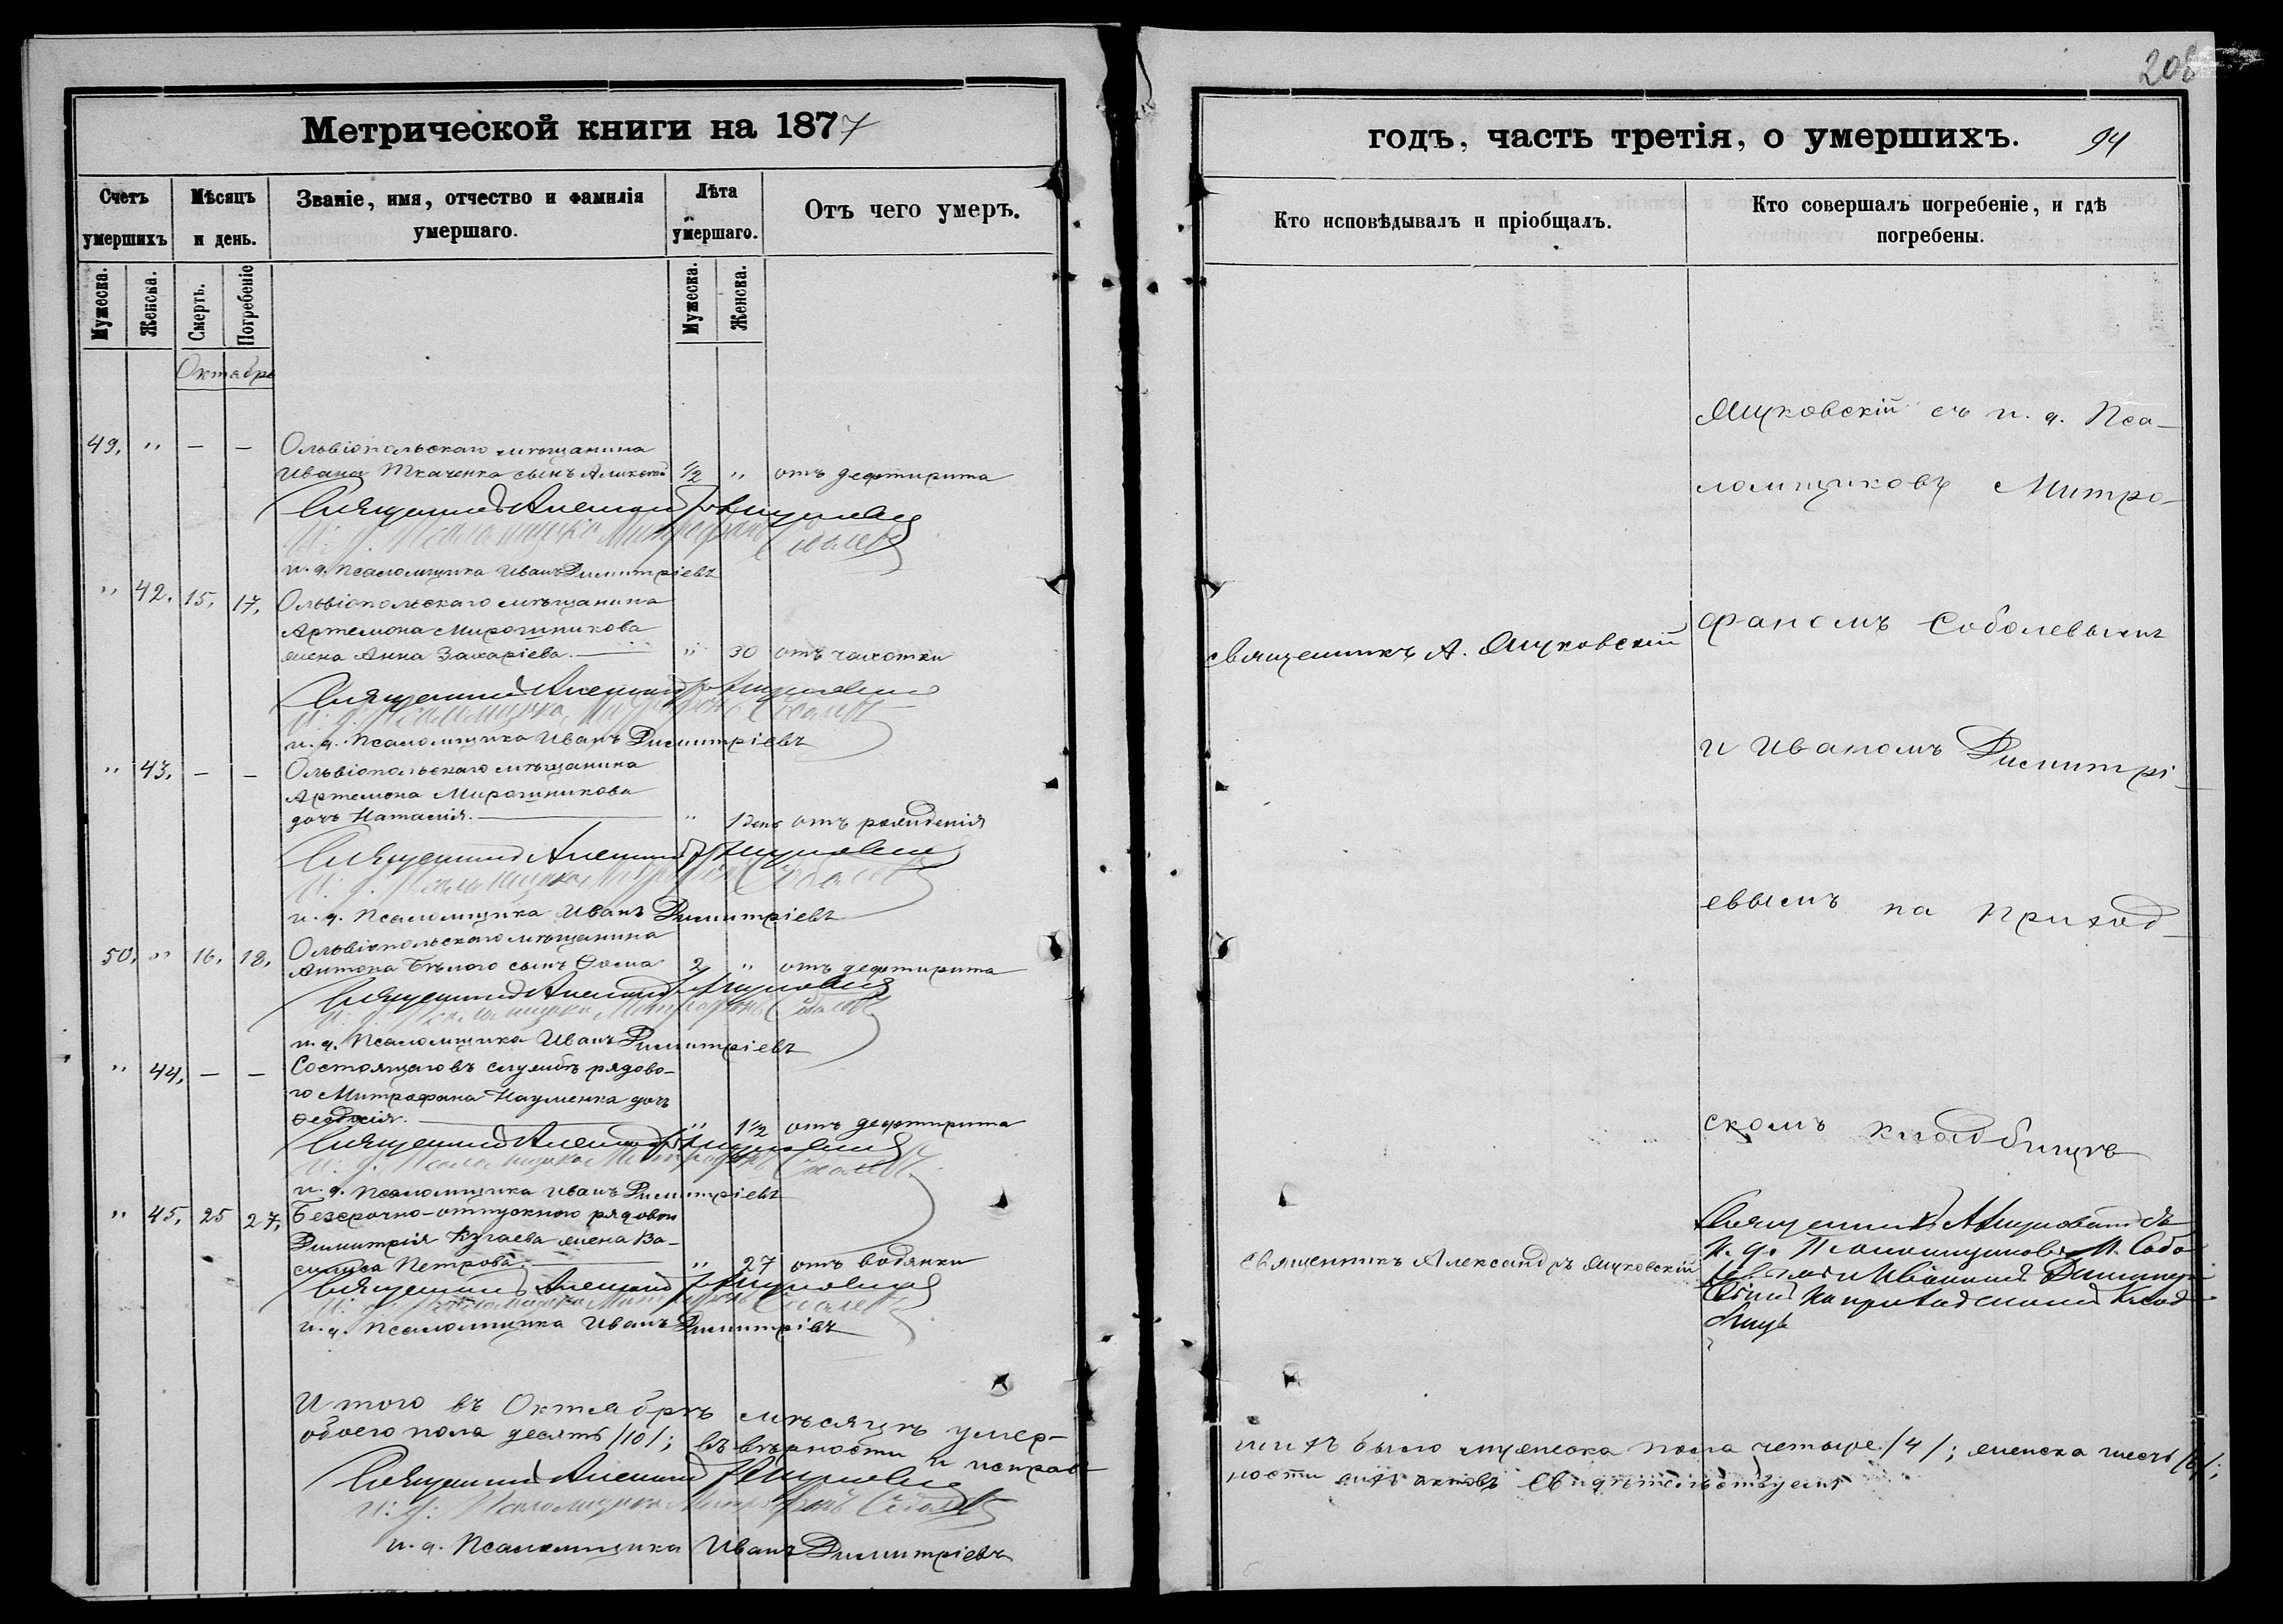 208
Метрической книги на 1877
годъ, часть третія, о умершихъ.
94
Счетъ умершихъ
Мѣсяцъ и день.
Званіе, имя, отчество и фамилія умершаго.
Лѣта умершаго.
Отъ чего умеръ.
Кто исповѣдывалъ и пріобщалъ.
Кто совершалъ погребеніе, и гдѣ погребены.
Мужеска.
Женска.
Смерть.
Погребеніе
Мужеска.
Женска.
Октябрь
49. " — — Ольвіопольскаго мѣщанина
Ивана Ткаченка сынъ Алексѣй 1/2 " отъ дефтирита
Священникъ Александръ Яцковскій
И. д. Псаломщика Митрофанъ Соболевъ
и. д. Псаломщика Иванъ Димитріевъ
" 42. 15. 17. Ольвіопольскаго мѣщанина
Артемона Мирошникова
жена Анна Захаріева. " 30 отъ чахотки
Священникъ Александръ Яцковскій
И. д. Псаломщика Митрофанъ Соболевъ
и. д. Псаломщика Иванъ Димитріевъ
" 43. — — Ольвіопольскаго мѣщанина
Артемона Мирошникова
дочь Наталія. " 1 день отъ рожденія
Священникъ Александръ Яцковскій
И. д. Псаломщика Митрофанъ Соболевъ
и. д. Псаломщика Иванъ Димитріевъ
50. " 16. 18. Ольвіопольскаго мѣщанина
Антона Бѣлого сынъ Ѳома 2 " отъ дефтирита
Священникъ Александръ Яцковскій
И. д. Псаломщика Митрофанъ Соболевъ
и. д. Псаломщика Иванъ Димитріевъ
" 44. — — Состоящаго въ службѣ рядово-
го Митрофана Науменка дочь
Ѳеодосія. " 1 1/2 отъ дефтирита
Священникъ Александръ Яцковскій
И. д. Псаломщика Митрофанъ Соболевъ
и. д. Псаломщика Иванъ Димитріевъ
" 45. 25 27. Безсрочно-отпускного рядового
Димитрія жена Ва-
силиса Петрова. " 27 отъ водянки
Священникъ Александръ Яцковскій
И. д. Псаломщика Митрофанъ Соболевъ
и. д. Псаломщика Иванъ Димитріевъ
Итого въ Октябрѣ мѣсяцѣ умер-
обоего пола десять /10/; въ вѣрности и исправ-
Священникъ Александръ Яцковскій
И. д. Псаломщика Митрофанъ Соболевъ
и. д. Псаломщика Иванъ Димитріевъ
Яцковскій съ и. д. Пса-
ломщиковъ Митро-
фаномъ Соболевымъ
священникъ А. Яцковскій
и Иваномъ Димитрі-
евымъ на приход-
скомъ кладбищѣ
священникъ Александръ Яцковскій
Священникъ А Яцковскій съ
И. д. Псаломщиковъ М. Собо
левымъ и Иваномъ Димитрі
евымъ на приходскомъ клад
бищѣ
шихъ было мужеска пола четыре /4/; женска шесть /6/;
ности сихъ актовъ свидѣтельствуемъ